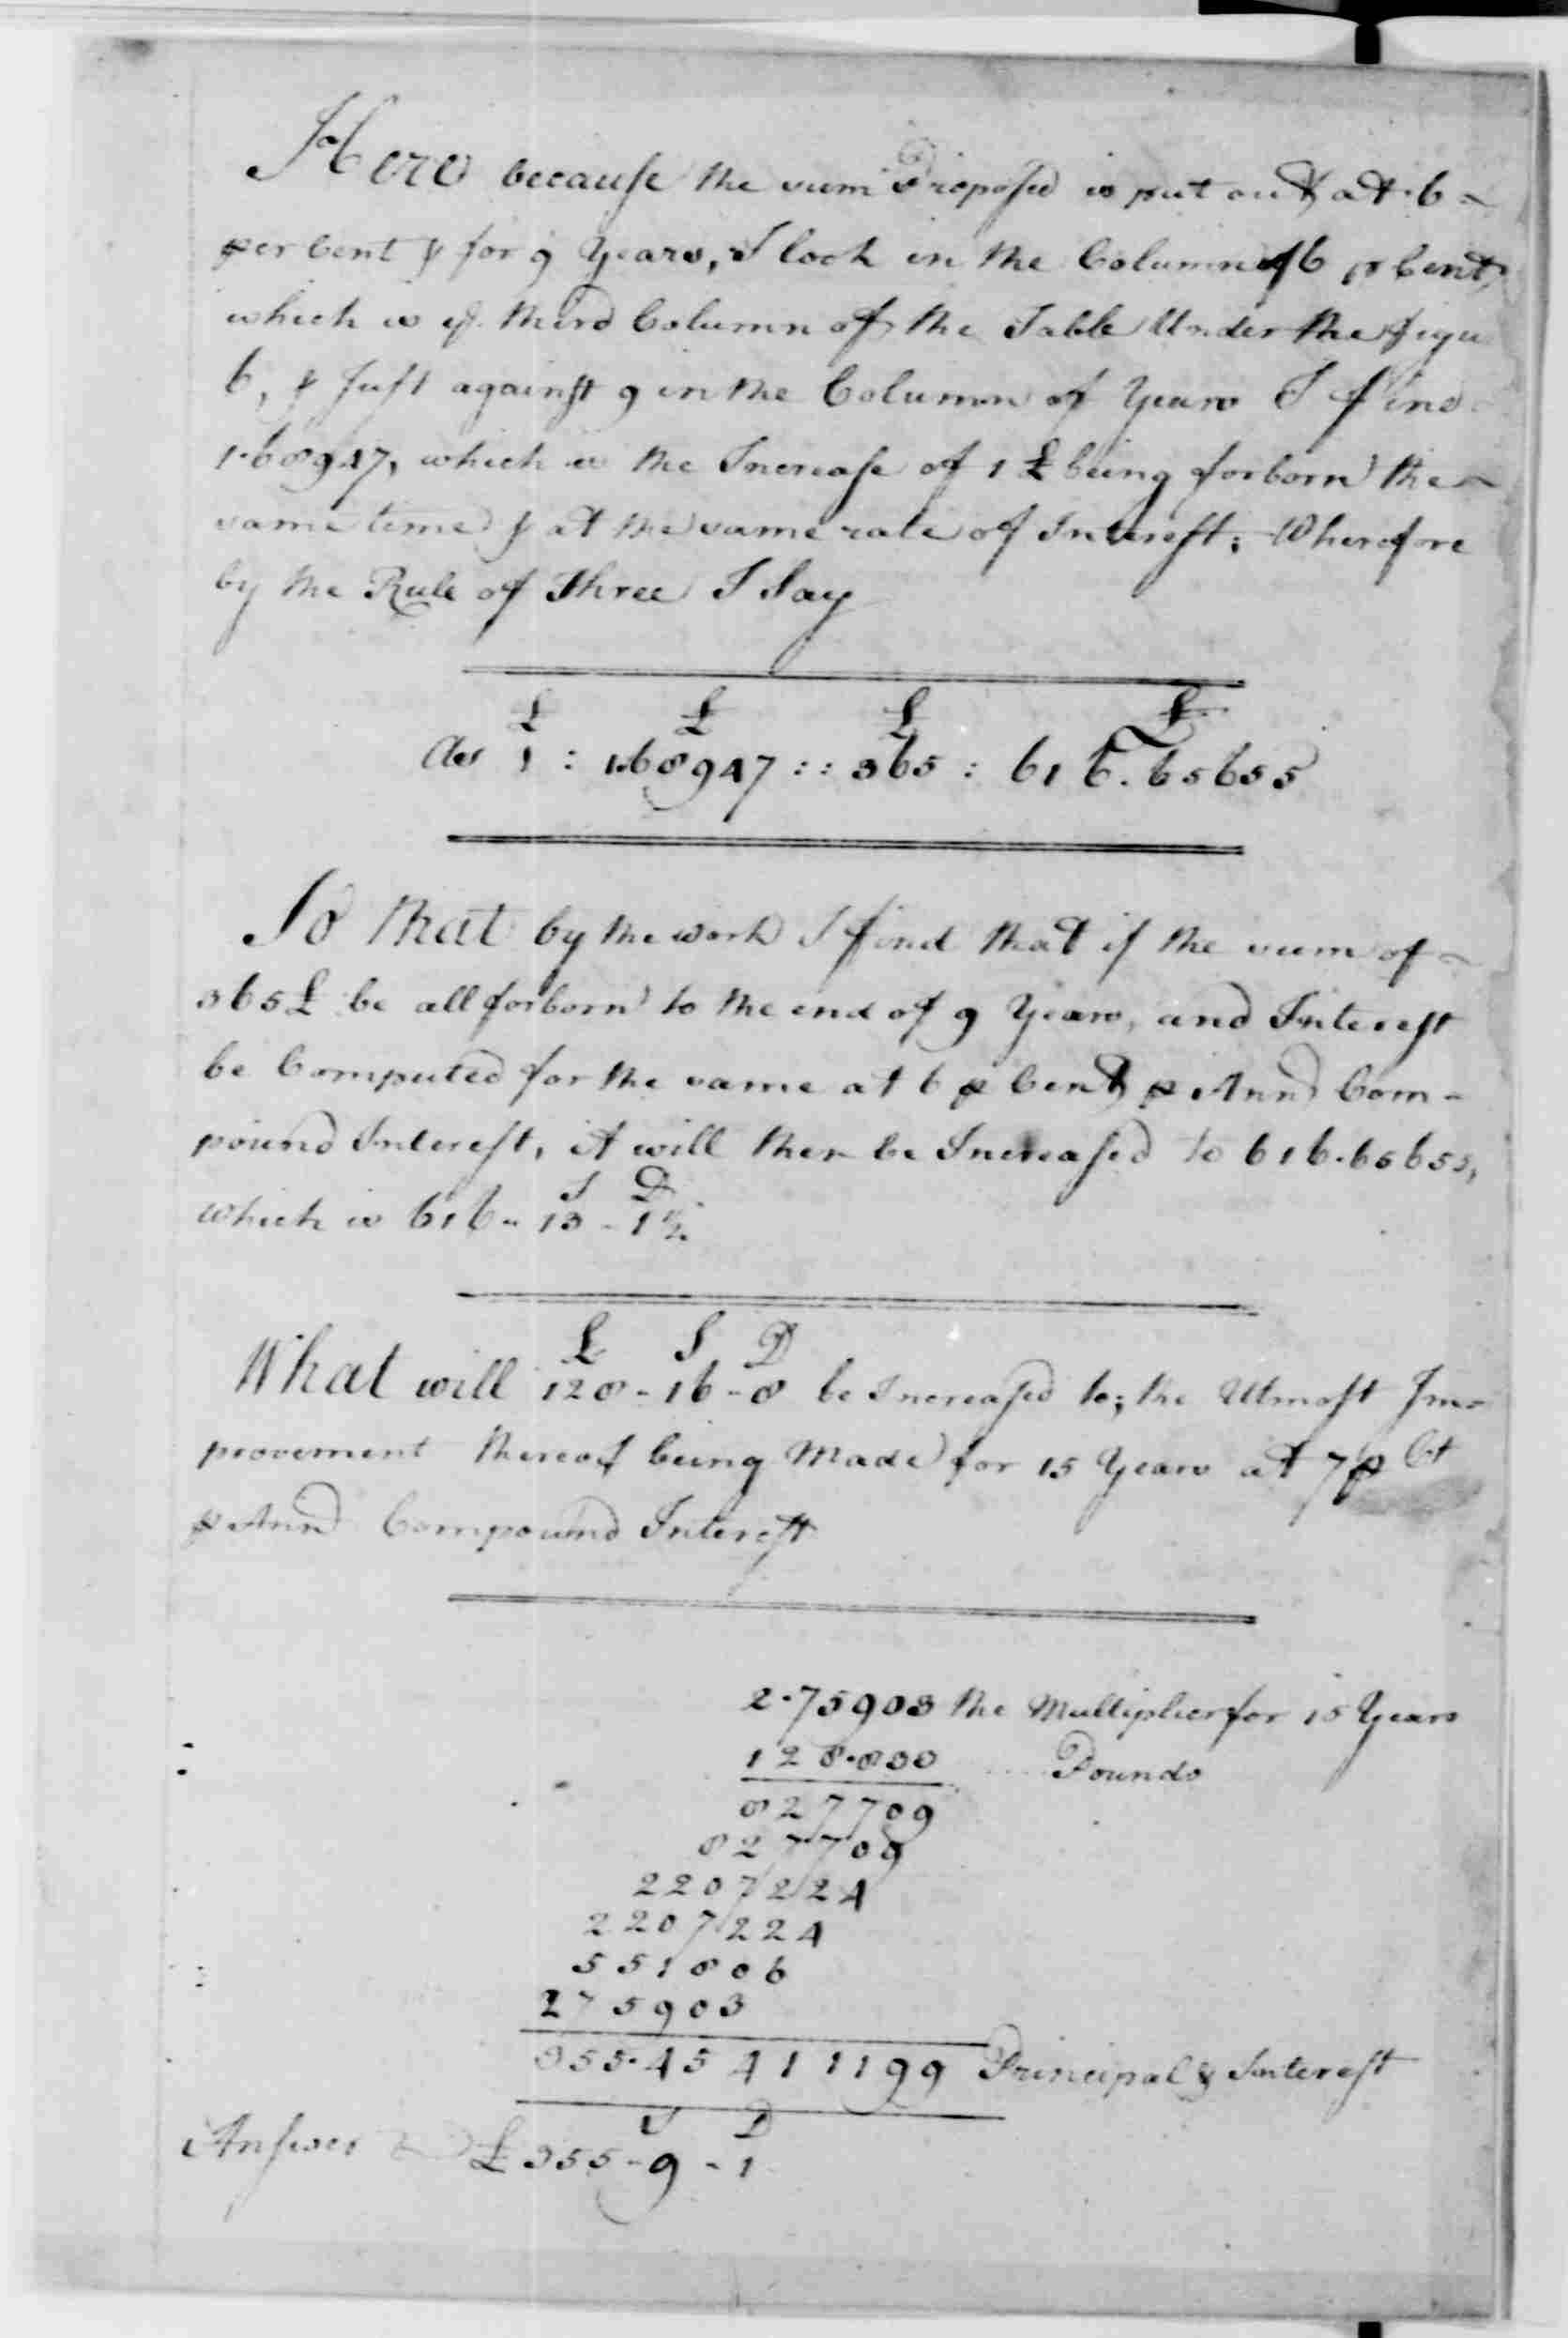 Here because the sum Proposed is put out at 6
per Cent & for 9 Years, I look in the Column of 6 p Cent
which is ye. third Column of the Table Under the figu
6, & Just against 9 in the Column of Years I find
1.68947, which is the Increase of 1 £ being forborn the
same time & at the same rate of Interest; Wherefore
by the Rule of Three I Say
£ £ £ £
As 1 : 1.68947 :: 365 : 616.65655
So that by the work I find that if the sum of
365£ be all forborn to the end of 9 Years, and Interest
be Computed for the same at 6 p Cent p Ann Com-
pound Interest, it will then be Increased to 616.65655,
S D
which is 616 - 13 - 1 1/2
£ S D
What will 128 - 16 - 8 be Increased to; the Utmost Im-
provement thereof being Made for 15 Years at 7 p Ct
p Ann Compound Interest
2.75903 the Multiplier for 15 Years
128.833 Pounds
827709
827709
2207224
2207224
551806
275903
355.4541199 Principal & Interest
S D
Answer £355 - 9 - 1